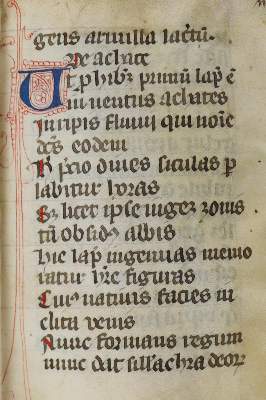 gens armilla lactū.
De achate
Ut phibēt primū lapˢ ē
inuentus achates
In ripis fluuij qui noīe
dc̄s eodem
precio diues siculas p
labitur horas
Et licet ipse niger zonis
tn̄ obsidet albis
Hic lapˢ ingenuas memo
ratur hr̄e figuras
Cuiꝰ natiuis facies in
clita venis
Nunc formans regum
nunc dat silłachra deoꝝ